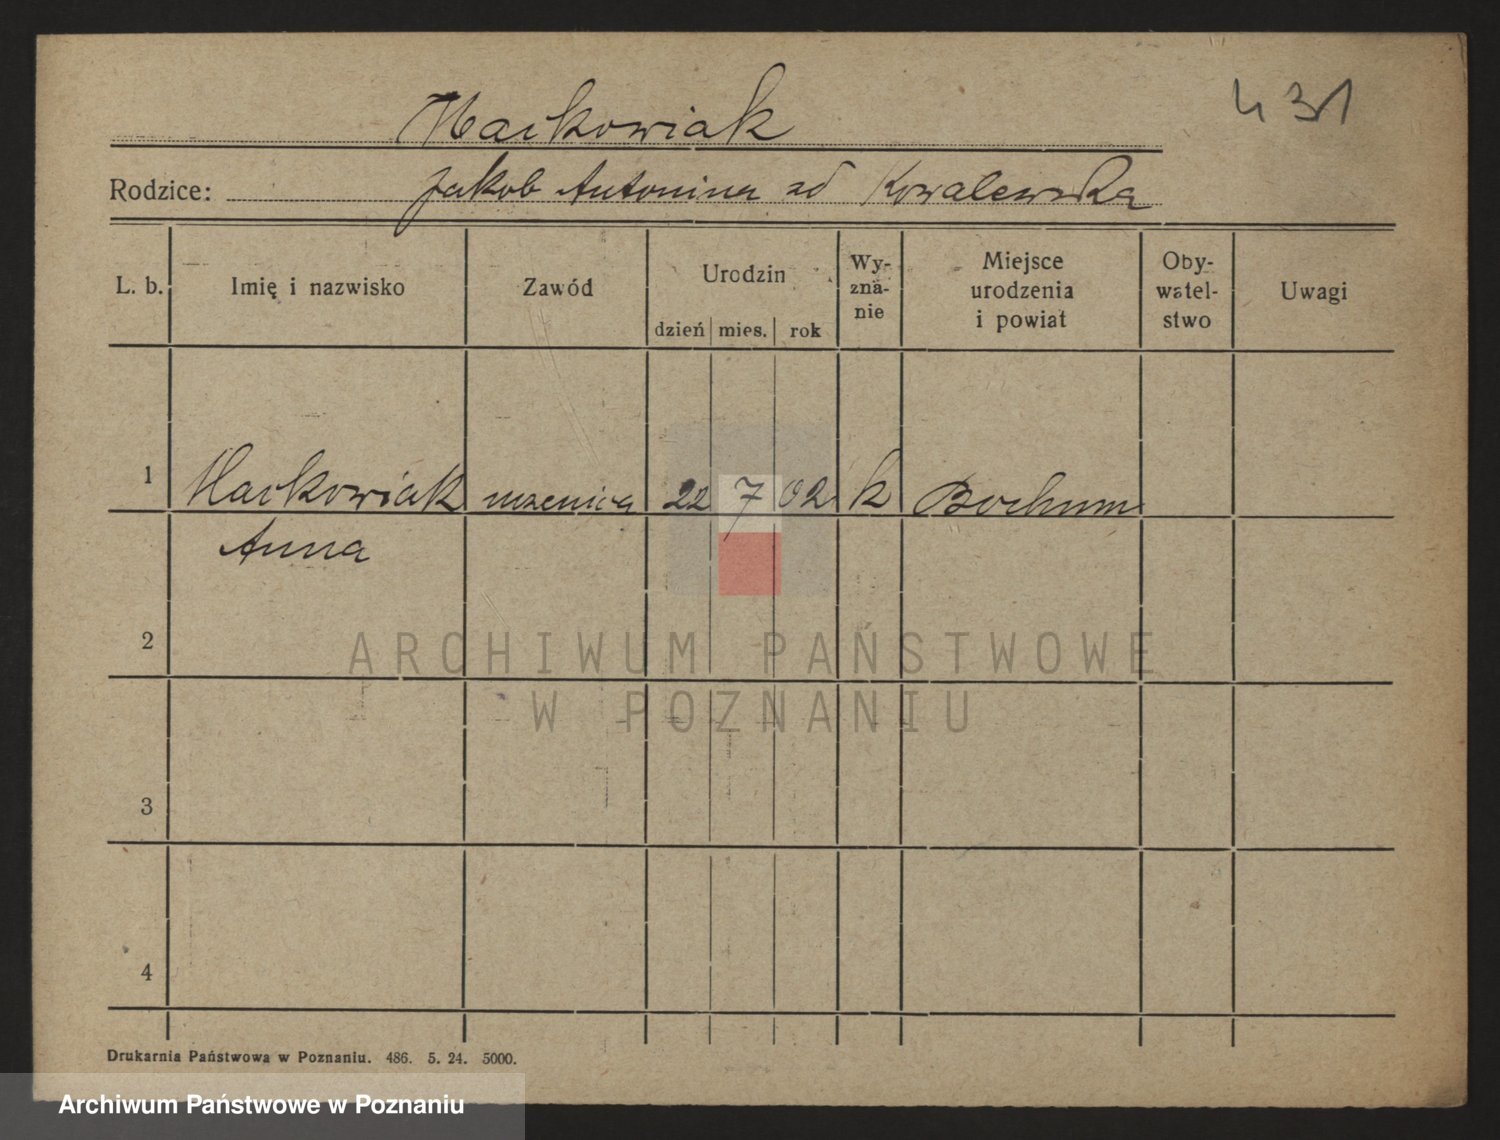 431
Maćkowiak
Rodzice: Jakob Antonina zd Kowalewska
L. b. Imię i nazwisko Zawód Urodzin dzień mies. rok Wy-zna-nie Miejsce urodzenia i powiat Oby-watel-stwo Uwagi
1 Maćkowiak uczenica 22 7 02 k Bochum
Anna
2
ARCHIWUM PAŃSTWOWE
W POZNANIU
3
4
Drukarnia Państwowa w Poznaniu. 486. 5. 24. 5000.
Archiwum Państwowe w Poznaniu